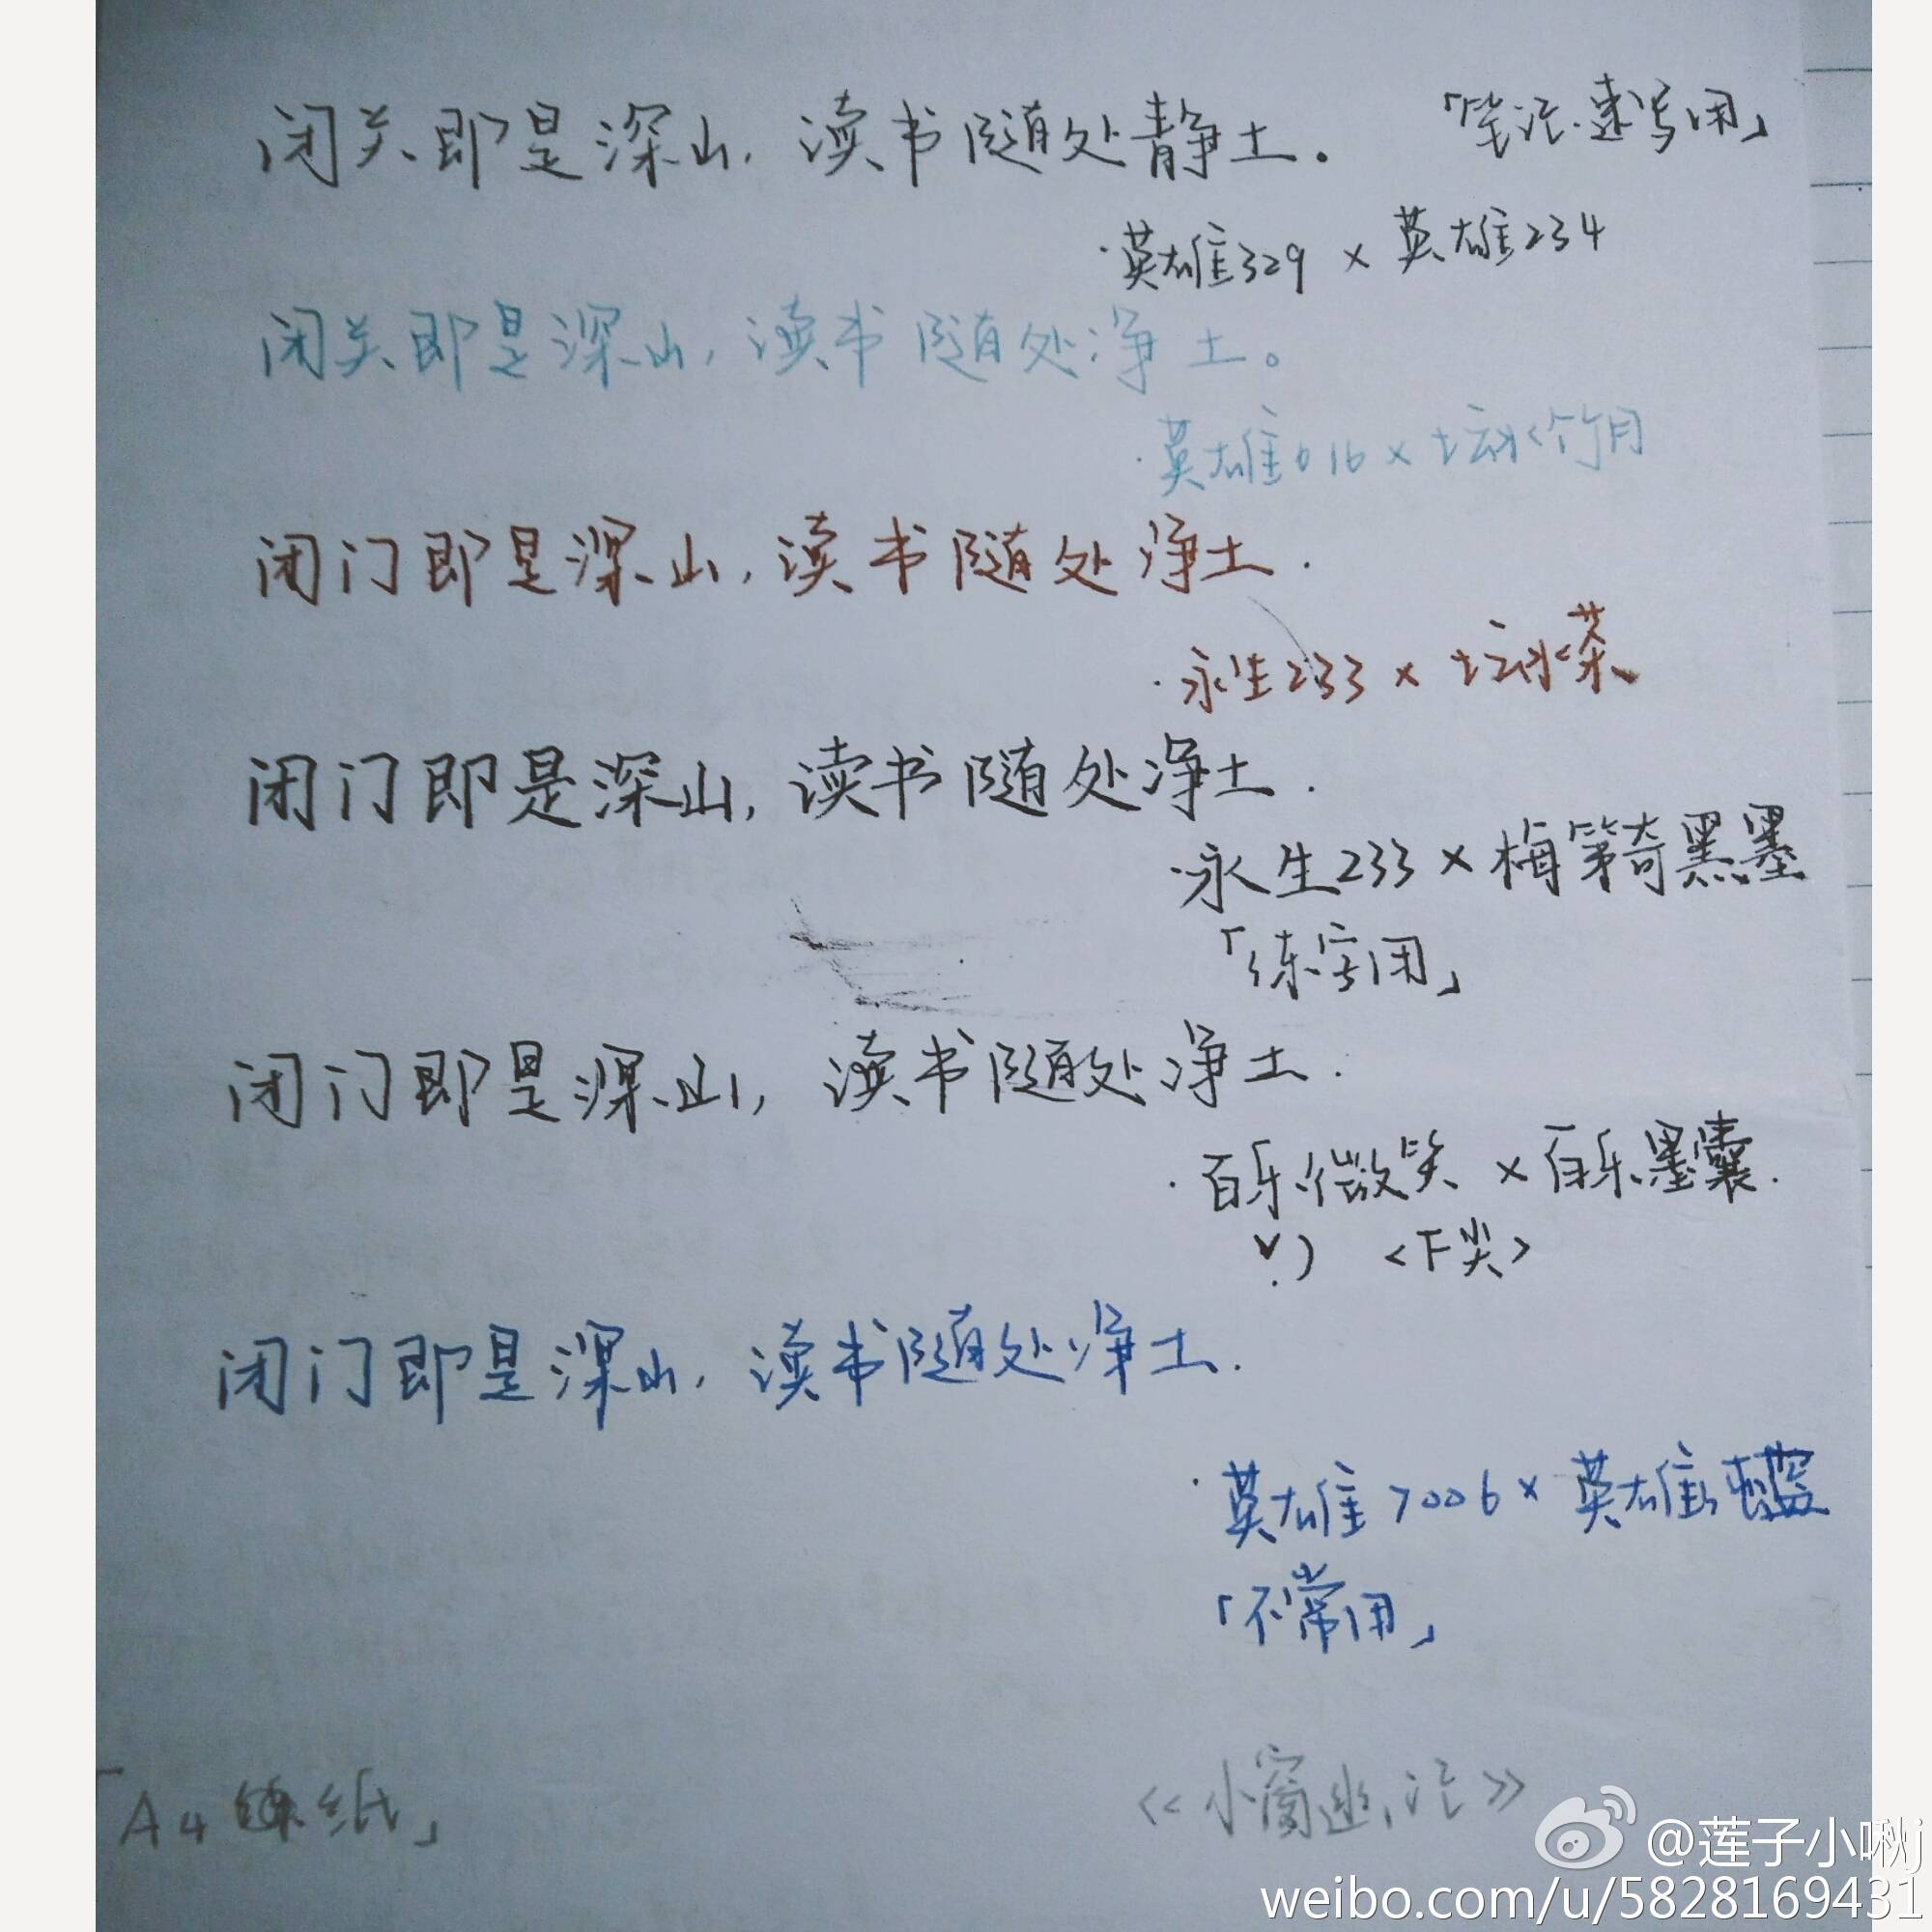 闭关即是深山，读书随处静土。 「笔记.速写用」
·英雄329 × 英雄234
闭关即是深山，读书随处净土。
·英雄616 × 坛水竹月
闭门即是深山，读书随处净土.
·永生233 × 坛水茶
闭门即是深山，读书随处净土.
·永生233 × 梅第奇黑墨
「练字用」
闭门即是深山，读书随处净土.
·百乐微笑 × 百乐墨囊.
<F尖>
闭门即是深山，读书随处净土.
·英雄7006 × 英雄蓝
「不常用」
「A4 练纸」 《小窗幽记》
@莲子小啾j
weibo.com/u/5828169431